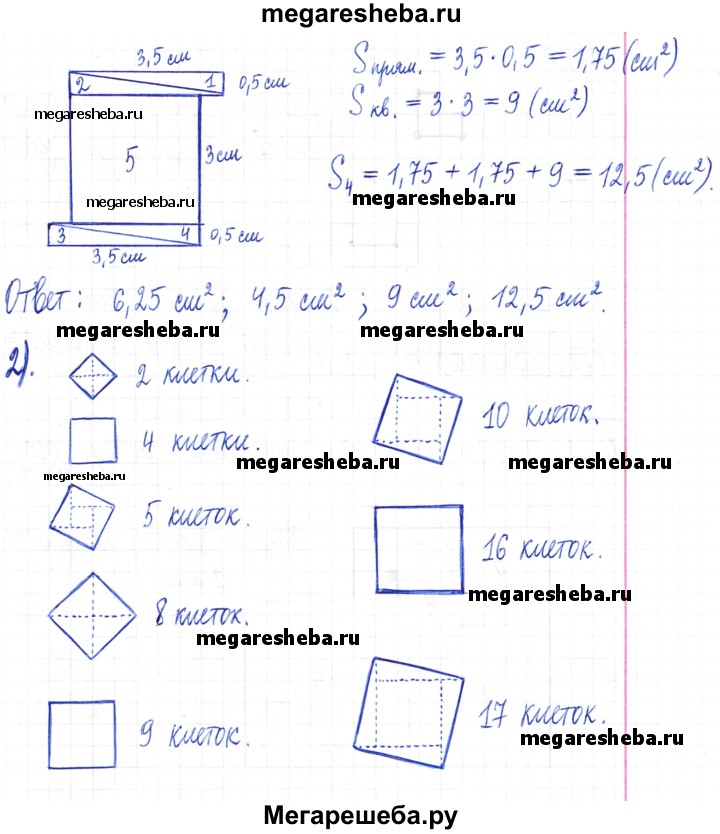 megaresheba.ru
3,5 см
2 1 0,5 см
megaresheba.ru
5
3 см
megaresheba.ru
3 4 0,5 см
3,5 см
Sпрям. = 3,5 · 0,5 = 1,75 (см²)
Sкв. = 3 · 3 = 9 (см²)
S₄ = 1,75 + 1,75 + 9 = 12,5 (см²).
megaresheba.ru
Ответ: 6,25 см²; 4,5 см²; 9 см²; 12,5 см².
megaresheba.ru megaresheba.ru
2).
2 клетки.
4 клетки.
megaresheba.ru
5 клеток.
8 клеток.
megaresheba.ru
9 клеток.
10 клеток.
megaresheba.ru megaresheba.ru
16 клеток.
megaresheba.ru
17 клеток.
megaresheba.ru
Мегарешеба.ру